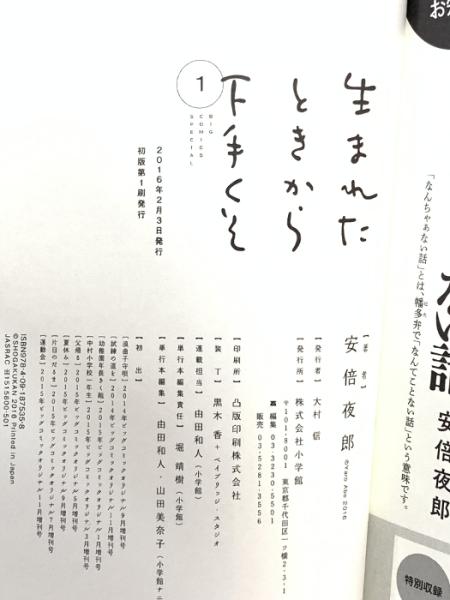 お
生まれた
ときから
下手くそ
1
BIG
COMICS
SPECIAL
2016年2月3日発行
初版第1刷発行
【著者】
安倍夜郎
©Yaro Abe 2016
【発行者】
大村 信
【発行所】
株式会社小学館
〒101-8001 東京都千代田区一ツ橋2-3-1
編集 03-3230-5501
販売 03-5281-3556
【印刷所】
凸版印刷株式会社
【装丁】
黒木 香+ベイブリッジ・スタジオ
【連載担当】
由田和人(小学館)
【単行本編集責任】
堀 靖樹(小学館)
【単行本編集】
由田和人・山田美奈子(小学館
【初出】
2014年ビッグコミックオリジナル9月増刊号
【試練の道を】2014年ビッグコミックオリジナル11月増刊号
【幼稚園年長さく組】2015年ビッグコミックオリジナル1月増刊号
【中村小学校一年生】2015年ビッグコミックオリジナル3月増刊号
【父帰る】2015年ビッグコミックオリジナル5月増刊号
【夏休み】2015年ビッグコミックオリジナル7月増刊号
【片目のだるま】2015年ビッグコミックオリジナル9月増刊号
【運動会】2015年ビッグコミックオリジナル11月増刊号
ISBN978-4-09-187535-8
©SHOGAKUKAN 2016 Printed in Japan
JASRAC 出1515600-501
「なんちゃあない話」とは、幡多弁で「なんてことない話」という意味です。
はた
ない話
安倍夜郎
特別収録